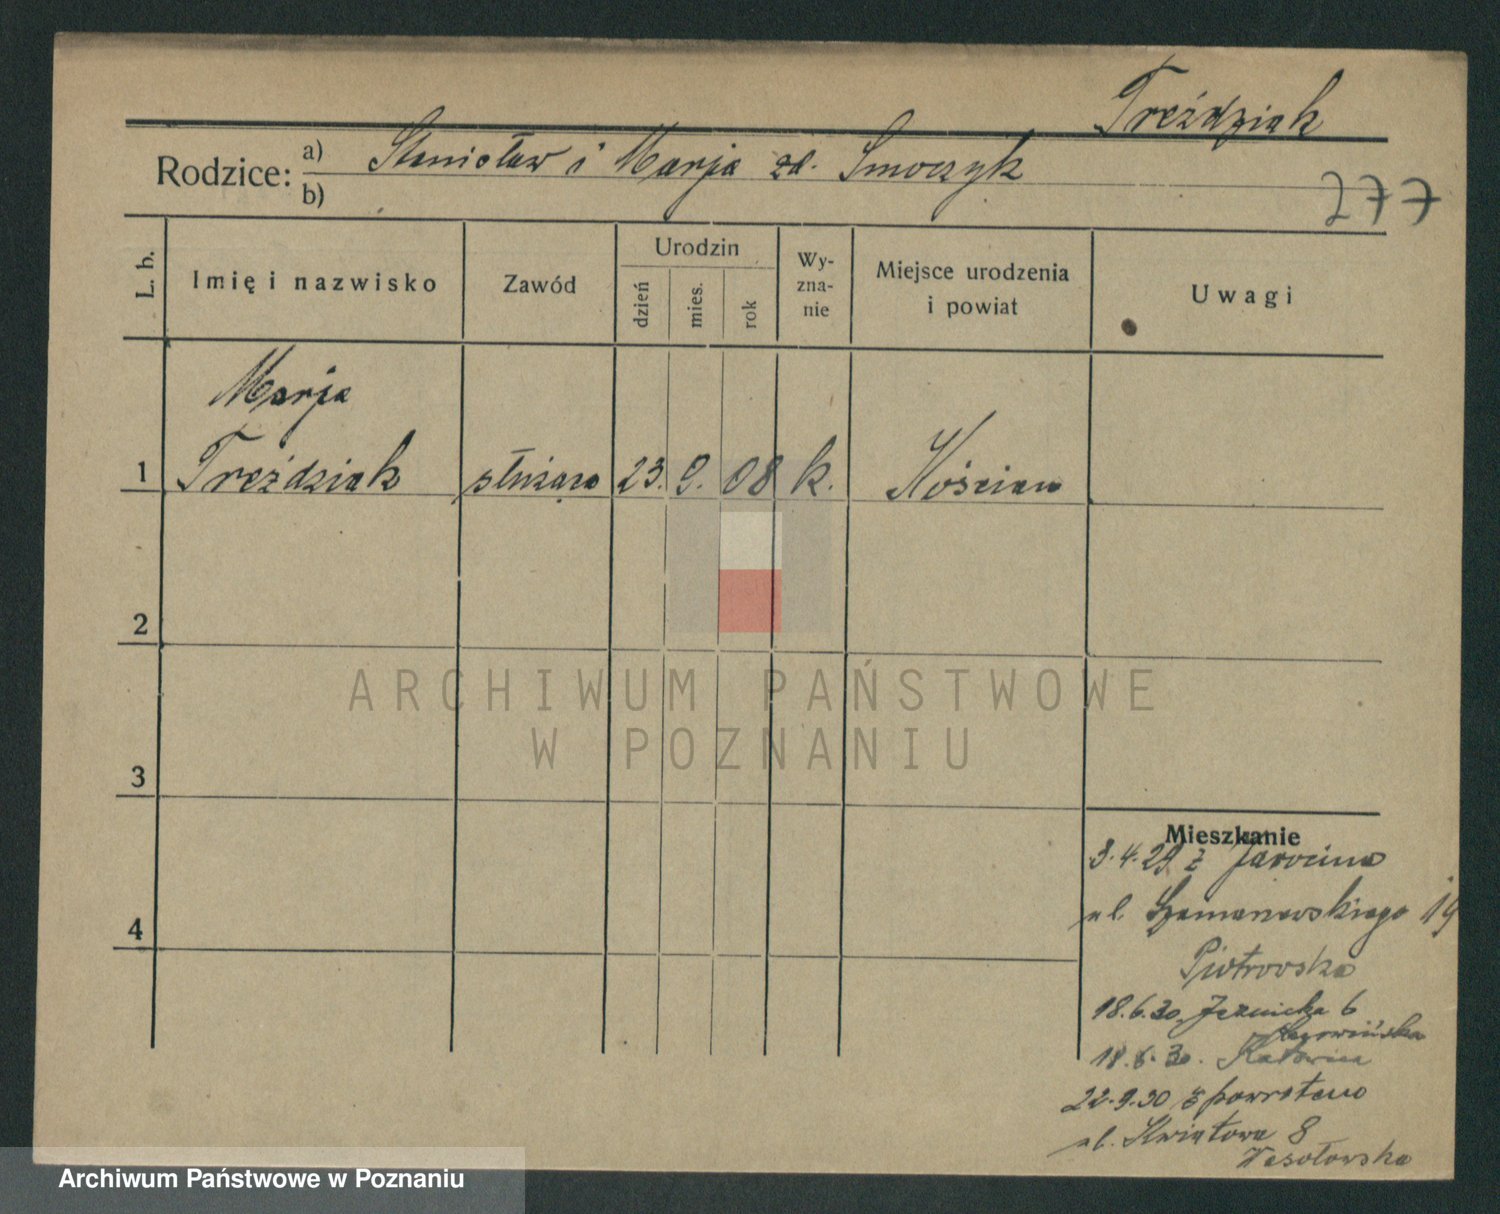 Treździak
Rodzice: a) Stanisław i Marja zd. Smoczyk
b)
277
L. b.
Imię i nazwisko
Zawód
Urodzin
dzień
mies.
rok
Wy-
zna-
nie
Miejsce urodzenia
i powiat
Uwagi
Marja
1 Treździak służąca 23. 9. 08 k. Kościan
2
3
4
ARCHIWUM PAŃSTWOWE
W POZNANIU
Mieszkanie
3.4.29 z Jarocina
ul. Szamarzewskiego 19
Piotrowska
18.6.30. 6
18.8.30.
22.9.30 z powrotem
ul. Kwiatowa 8
Wesołowska
Archiwum Państwowe w Poznaniu